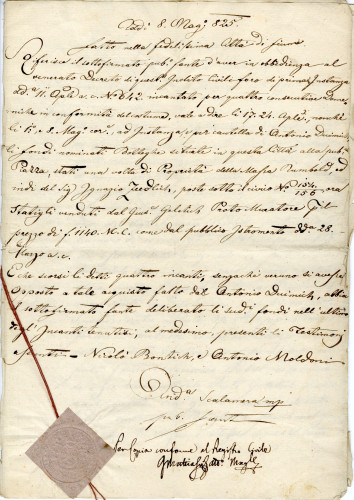 Add: 8. Magº 825.
fatto nella fedelissima Città di fiume
Riferisce il sottofirmato pubº fante d'aver in obbedienza al
venerato Decreto di questº Inclito Civile foro di prima Instanza
dd.ª 11. Aple a. c. Nº 642. incantato per quattro consecutive
in conformità del costume, vale a dire li 17. 24. Aple, nonché
li 1º e 8. Magº corº. ad Instanza per cautella di Antonio
li fondi nominati Botteghe situate in questa Città alla pubª
Piazza, stati una volta di Proprietà della Massa Rumbold, ed
indi del Sigº Ignazio, poste sotto il civio Nº 154. ora
156
statigli venduti dal Giusº Proto Muratore pel
prezzo di f. 1140. N. C. come dal pubblico Istromento dd.ª 28.
Marzo a. c.
E che scorsi li detti quattro incanti, senzaché veruno si avesse
opposto a tale acquisto fatto dal Antonio, abbia
il sottofirmato fante deliberato li sudº fondi nell'ultimo
degl'Incanti tenutisi, al medesimo, presenti li Testimonj
Nicolò e Antonio Moldini
Andª Scalamera mp
pubº fante
Per copia conforme al Registro Civile